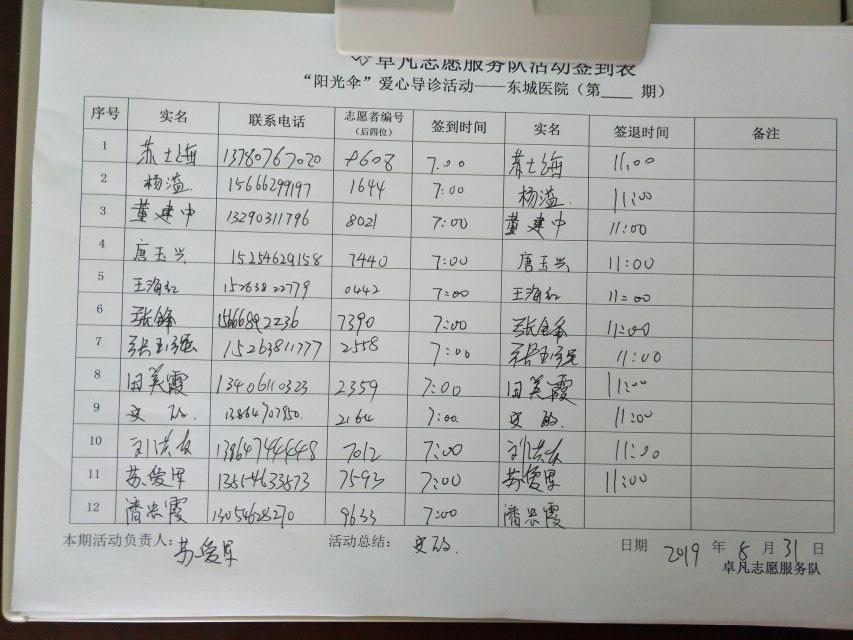 卓凡志愿服务队活动签到表
“阳光伞”爱心导诊活动——东城医院（第____期）
序号 实名 联系电话 志愿者编号（后四位） 签到时间 实名 签退时间 备注
1 苏士海 13780767020 8608 7:00 苏士海 11:00
2 杨溢. 15666299197 1644 7:00 杨溢. 11:00
3 董建中 13290311796 8021 7:00 董建中 11:00
4 唐玉兴 15254629158 7440 7:00 唐玉兴 11:00
5 王海红 15263822779 0442 7:00 王海红 11:00
6 15666892236 7390 7:00 11:00
7 张玉强 15263811777 2558 7:00 张玉强 11:00
8 田美霞 13406110323 2359 7:00 田美霞 11:00
9 13864707950. 2164 7:00. 11:00
10 刘洪友 13864744448 7012 7:00 刘洪友 11:00
11 苏爱军 13514633573 7593 7:00 苏爱军 11:00
12 潘兴霞 13054628270 9633 7:00 潘兴霞
本期活动负责人：苏爱军 活动总结： 日期 2019 年 8 月 31 日
卓凡志愿服务队